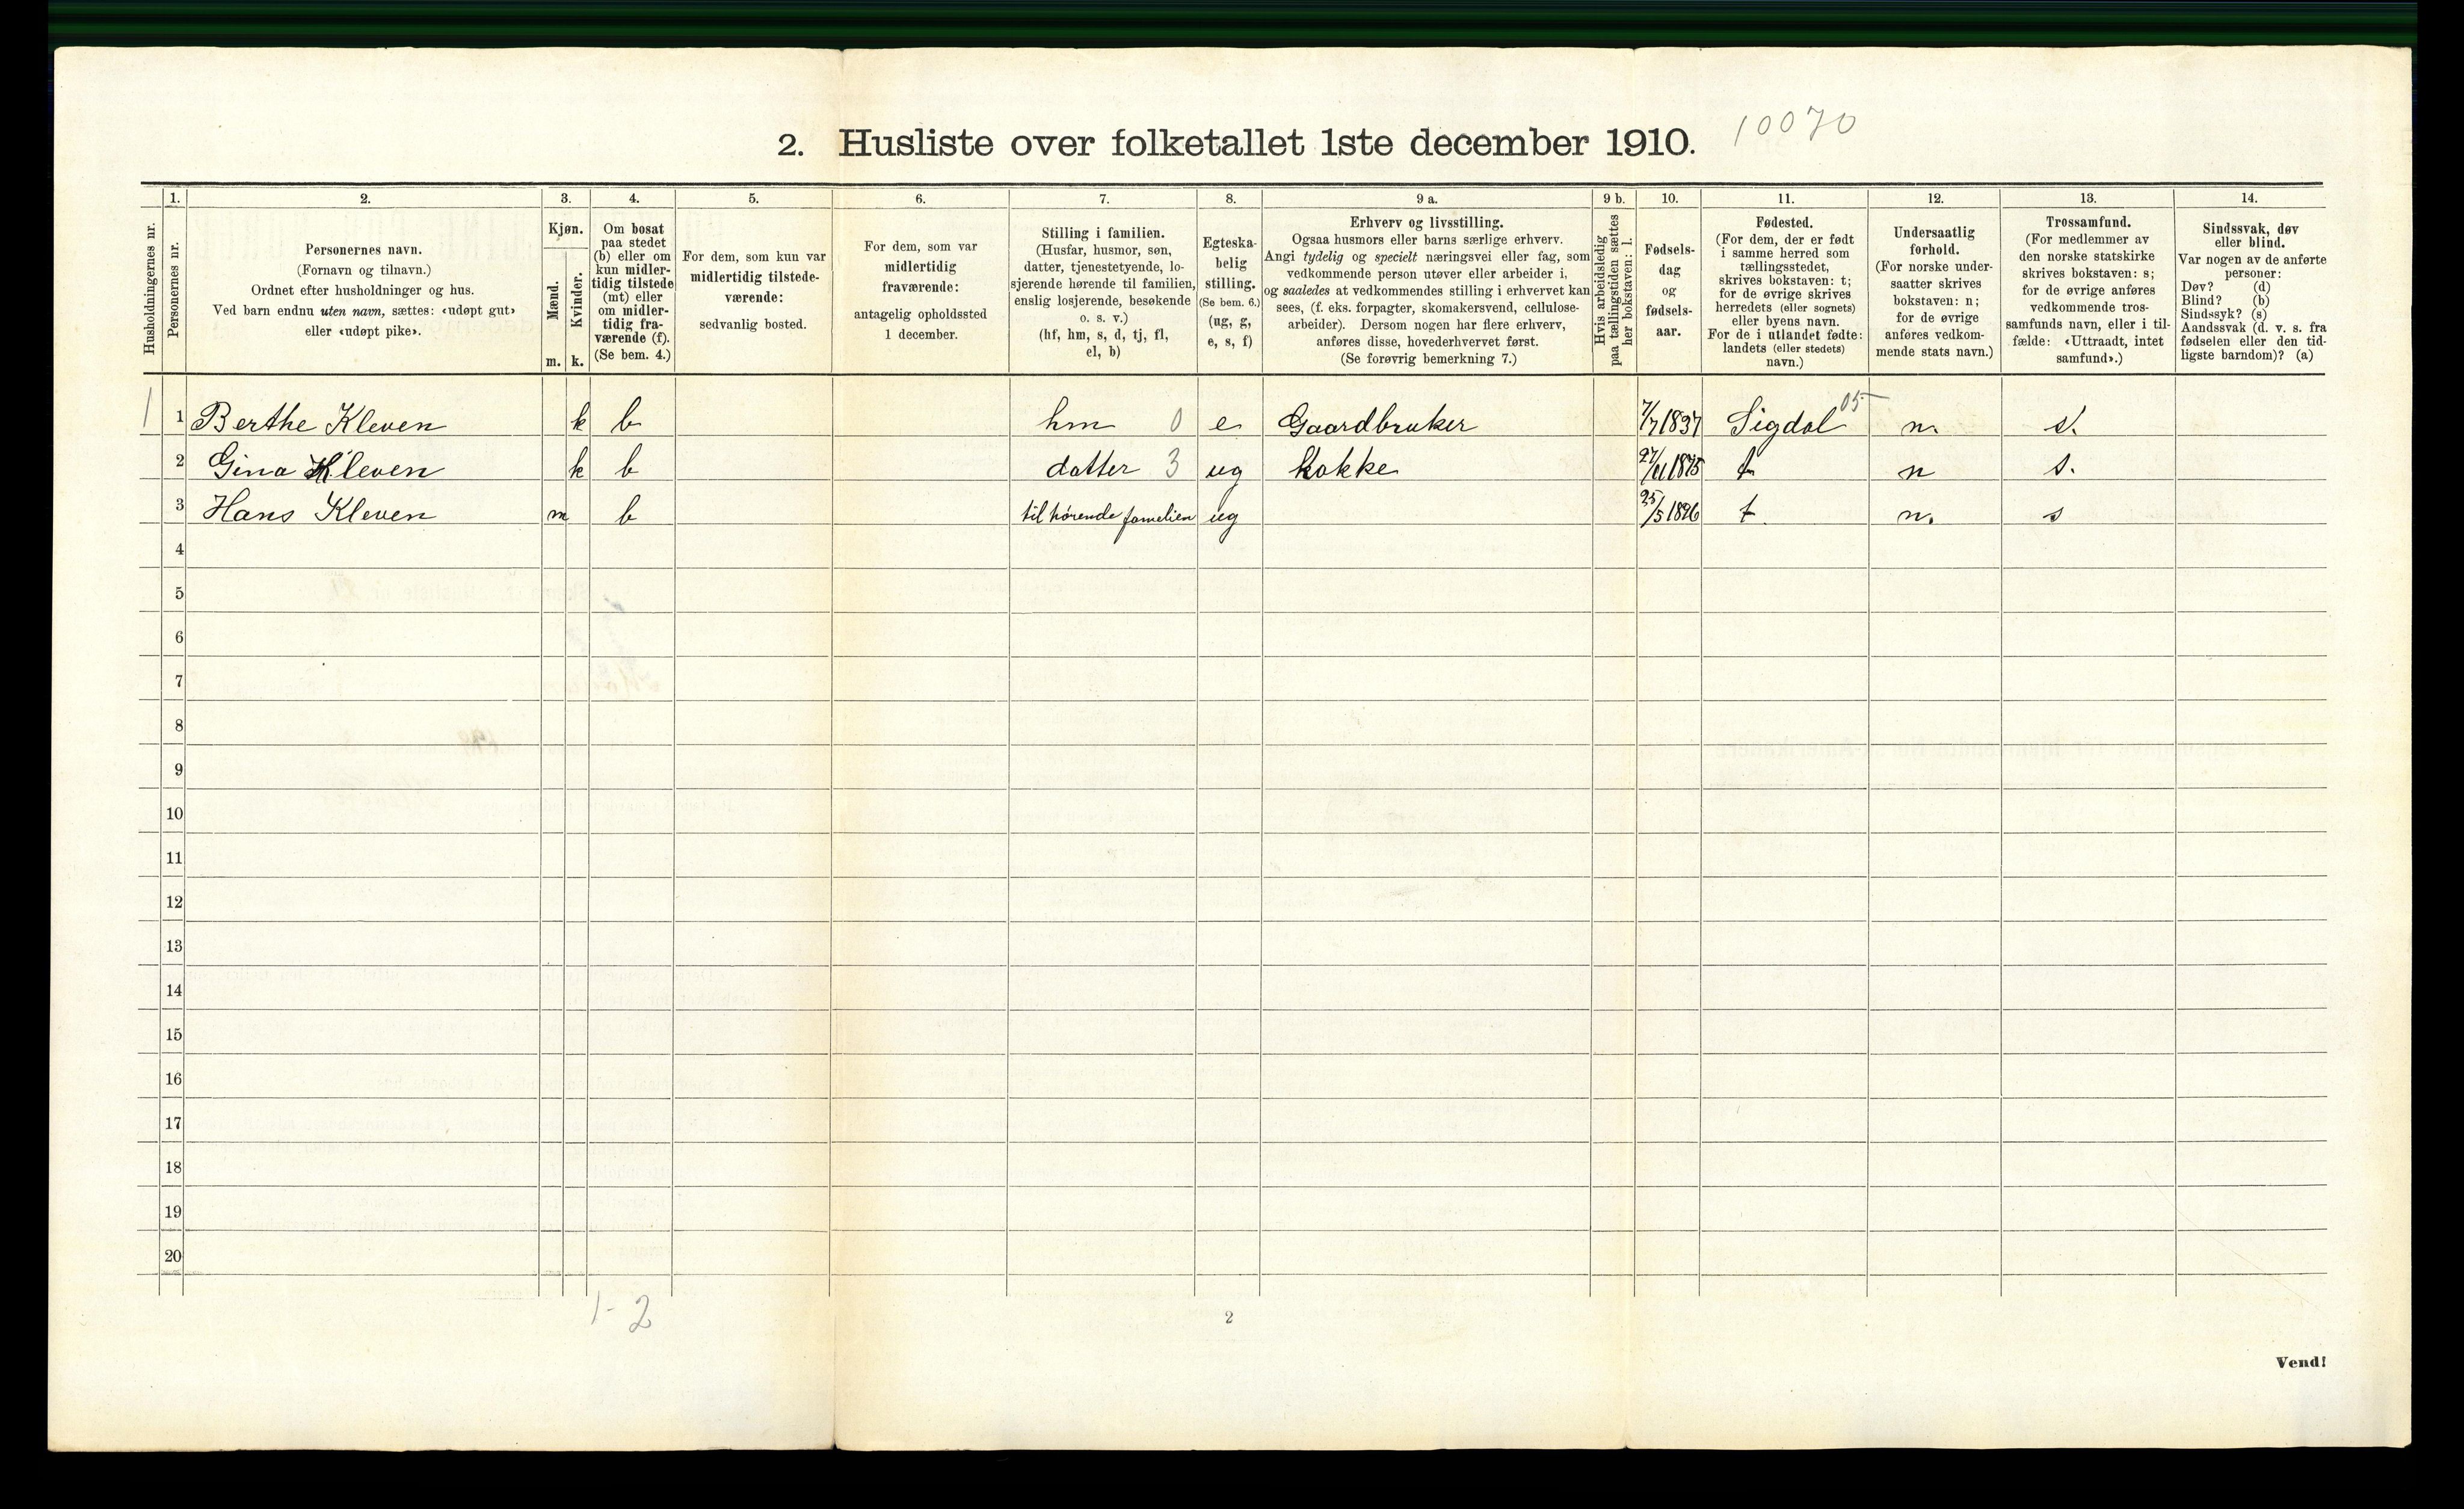 10070
2. Husliste over folketallet 1ste december 1910.
Husholdningernes nr.
1.
Personernes nr.
2.
Personernes navn.
(Fornavn og tilnavn.)
Ordnet efter husholdninger og hus.
Ved barn endnu uten navn, sættes: «udøpt gut»
eller «udøpt pike».
3.
Kjøn.
Mænd.
Kvinder.
m. k.
4.
Om bosat
paa stedet
(b) eller om
kun midler-
tidig tilstede
(mt) eller
om midler-
tidig fra-
værende (f).
(Se bem. 4.)
5.
For dem, som kun var
midlertidig tilstede-
værende:
sedvanlig bosted.
6.
For dem, som var
midlertidig
fraværende:
antagelig opholdssted
1 december.
7.
Stilling i familien.
(Husfar, husmor, søn,
datter, tjenestetyende, lo-
sjerende hørende til familien,
enslig losjerende, besøkende
o. s. v.)
(hf, hm, s, d, tj, fl,
el, b)
8.
Egteska-
belig
stilling.
(Se bem. 6.)
(ug, g,
e, s, f)
9 a.
Erhverv og livsstilling.
Ogsaa husmors eller barns særlige erhverv.
Angi tydelig og specielt næringsvei eller fag, som
vedkommende person utøver eller arbeider i,
og saaledes at vedkommendes stilling i erhvervet kan
sees, (f. eks. forpagter, skomakersvend, cellulose-
arbeider). Dersom nogen har flere erhverv,
anføres disse, hovederhvervet først.
(Se forøvrig bemerkning 7.)
9 b.
Hvis arbeidsledig
paa tællingstiden sættes
her bokstaven: l.
10.
Fødsels-
dag
og
fødsels-
aar.
11.
Fødested.
(For dem, der er født
i samme herred som
tællingsstedet,
skrives bokstaven: t;
for de øvrige skrives
herredets (eller sognets)
eller byens navn.
For de i utlandet fødte:
landets (eller stedets)
navn.)
12.
Undersaatlig
forhold.
(For norske under-
saatter skrives
bokstaven: n;
for de øvrige
anføres vedkom-
mende stats navn.)
13.
Trossamfund.
(For medlemmer av
den norske statskirke
skrives bokstaven: s;
for de øvrige anføres
vedkommende tros-
samfunds navn, eller i til-
fælde: «Uttraadt, intet
samfund».)
14.
Sindssvak, døv
eller blind.
Var nogen av de anførte
personer:
Døv? (d)
Blind? (b)
Sindssyk? (s)
Aandssvak (d. v. s. fra
fødselen eller den tid-
ligste barndom)? (a)
1 1 Berthe Kleven k b hm 0 e Gaardbruker 7/7 1837 Sigdal 05 n. s.
2 Gina Kleven k b datter 3 ug kokke 27/11 1875 t n s.
3 Hans Kleven m b tilhørende famelien ug 25/5 1896 t n. s
4
5
6
7
8
9
10
11
12
13
14
15
16
17
18
19
20
1-2
2
Vend!